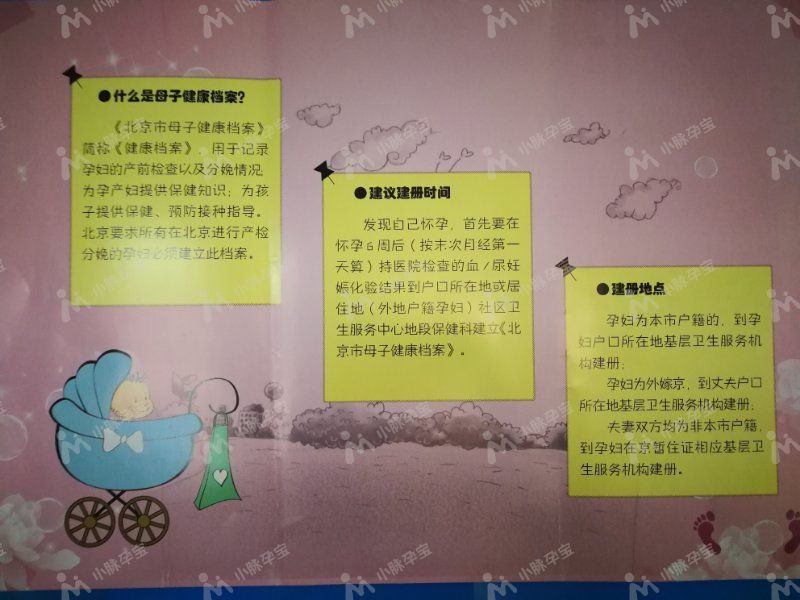 ●什么是母子健康档案?
《北京市母子健康档案》
简称《健康档案》，用于记录
孕妇的产前检查以及分娩情况;
为孕产妇提供保健知识；为孩
子提供保健、预防接种指导。
北京要求所有在北京进行产检
分娩的孕妇必须建立此档案。
●建议建册时间
发现自己怀孕，首先要在
怀孕6周后（按末次月经第一
天算）持医院检查的血/尿妊
娠化验结果到户口所在地或居
住地（外地户籍孕妇）社区卫
生服务中心地段保健科建立《北
京市母子健康档案》。
●建册地点
孕妇为本市户籍的，到孕
妇户口所在地基层卫生服务机
构建册；
孕妇为外嫁京，到丈夫户口
所在地基层卫生服务机构建册；
夫妻双方均为非本市户籍，
到孕妇在京暂住证相应基层卫
生服务机构建册。
小脉孕宝